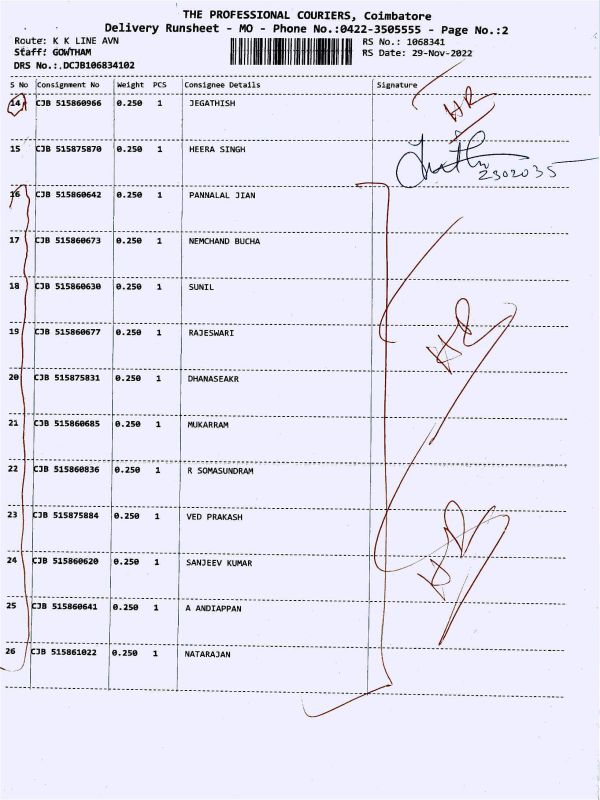 THE PROFESSIONAL COURIERS, Coimbatore
Delivery Runsheet - MO - Phone No.:0422-3505555 - Page No.:2
Route: K K LINE AVN RS No.: 1068341
Staff: GOWTHAM RS Date: 29-Nov-2022
DRS No.:.DCJB106834102
S No Consignment No Weight PCS Consignee Details Signature
14 CJB 515860966 0.250 1 JEGATHISH HR
15 CJB 515875870 0.250 1 HEERA SINGH
2302035
16 CJB 515860642 0.250 1 PANNALAL JIAN
17 CJB 515860673 0.250 1 NEMCHAND BUCHA
18 CJB 515860630 0.250 1 SUNIL
19 CJB 515860677 0.250 1 RAJESWARI HR
20 CJB 515875831 0.250 1 DHANASEAKR
21 CJB 515860685 0.250 1 MUKARRAM
22 CJB 515860836 0.250 1 R SOMASUNDRAM
23 CJB 515875884 0.250 1 VED PRAKASH
24 CJB 515860620 0.250 1 SANJEEV KUMAR HR
25 CJB 515860641 0.250 1 A ANDIAPPAN
26 CJB 515861022 0.250 1 NATARAJAN